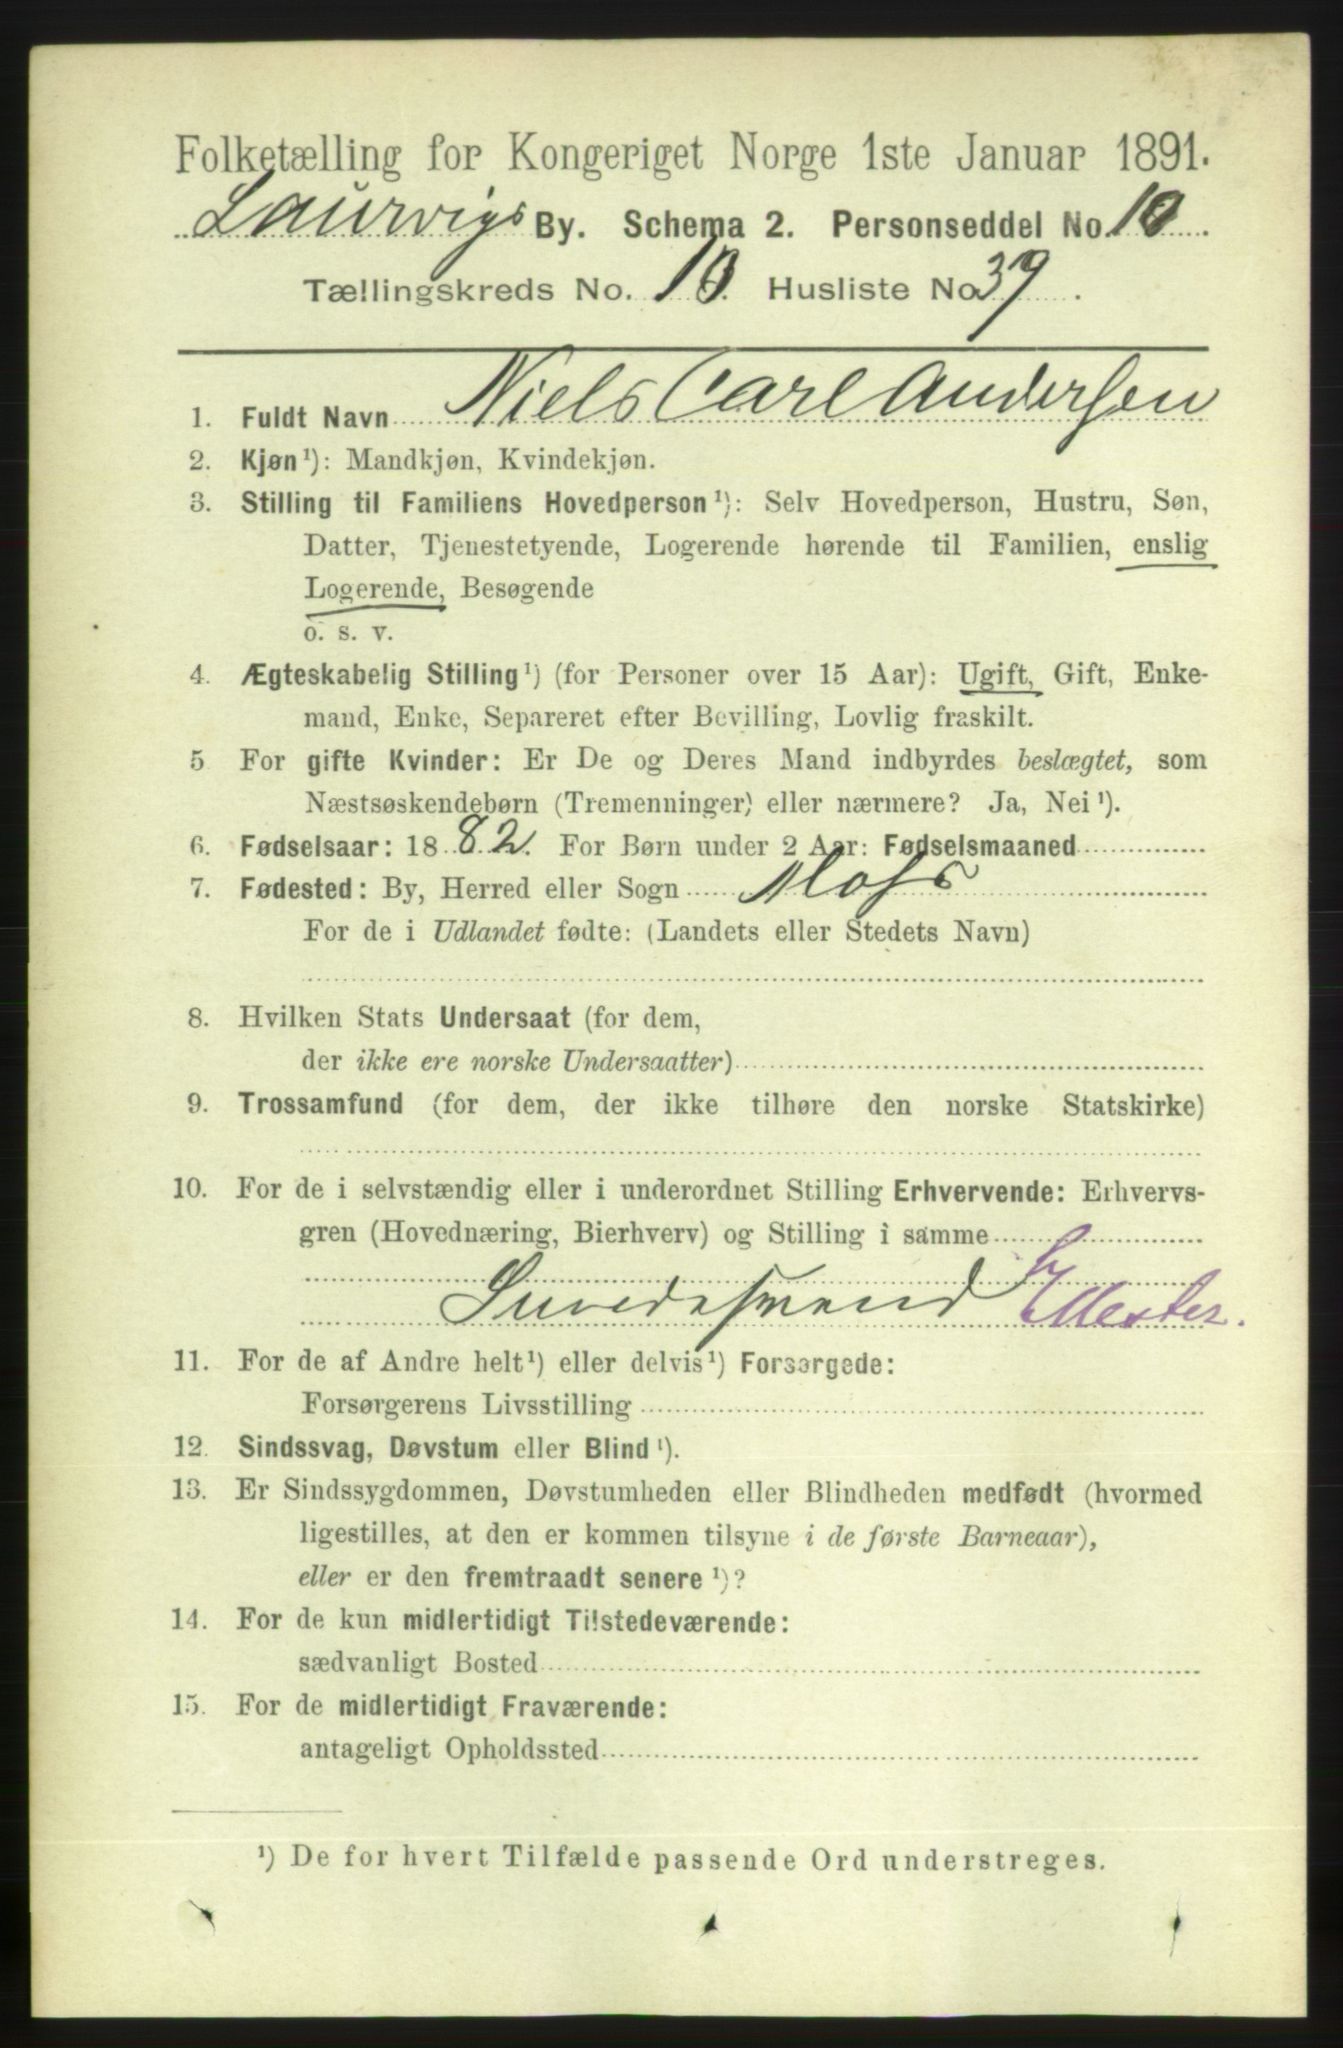 Folketælling for Kongeriget Norge 1ste Januar 1891.
Laurvigs By. Schema 2. Personseddel No. 10
Tællingskreds No. 10. Husliste No. 39.
1. Fuldt Navn Niels Carl Andersen
2. Kjøn ¹): Mandkjøn, Kvindekjøn.
3. Stilling til Familiens Hovedperson ¹): Selv Hovedperson, Hustru, Søn,
Datter, Tjenestetyende, Logerende hørende til Familien, enslig
Logerende, Besøgende
o. s. v.
4. Ægteskabelig Stilling ¹) (for Personer over 15 Aar): Ugift, Gift, Enke-
mand, Enke, Separeret efter Bevilling, Lovlig fraskilt.
5 For gifte Kvinder: Er De og Deres Mand indbyrdes beslægtet, som
Næstsøskendebørn (Tremenninger) eller nærmere? Ja, Nei ¹).
6. Fødselsaar: 1882. For Børn under 2 Aar: Fødselsmaaned
7. Fødested: By, Herred eller Sogn Moss
For de i Udlandet fødte: (Landets eller Stedets Navn)
8. Hvilken Stats Undersaat (for dem,
der ikke ere norske Undersaatter)
9. Trossamfund (for dem, der ikke tilhøre den norske Statskirke)
10. For de i selvstændig eller i underordnet Stilling Erhvervende: Erhvervs-
gren (Hovednæring, Bierhverv) og Stilling i samme
Mester.
11. For de af Andre helt ¹) eller delvis ¹) Forsørgede:
Forsørgerens Livsstilling
12. Sindssvag, Døvstum eller Blind ¹).
13. Er Sindssygdommen, Døvstumheden eller Blindheden medfødt (hvormed
ligestilles, at den er kommen tilsyne i de første Barneaar),
eller er den fremtraadt senere ¹)?
14. For de kun midlertidigt Tilstedeværende:
sædvanligt Bosted
15. For de midlertidigt Fraværende:
antageligt Opholdssted
¹) De for hvert Tilfælde passende Ord understreges.